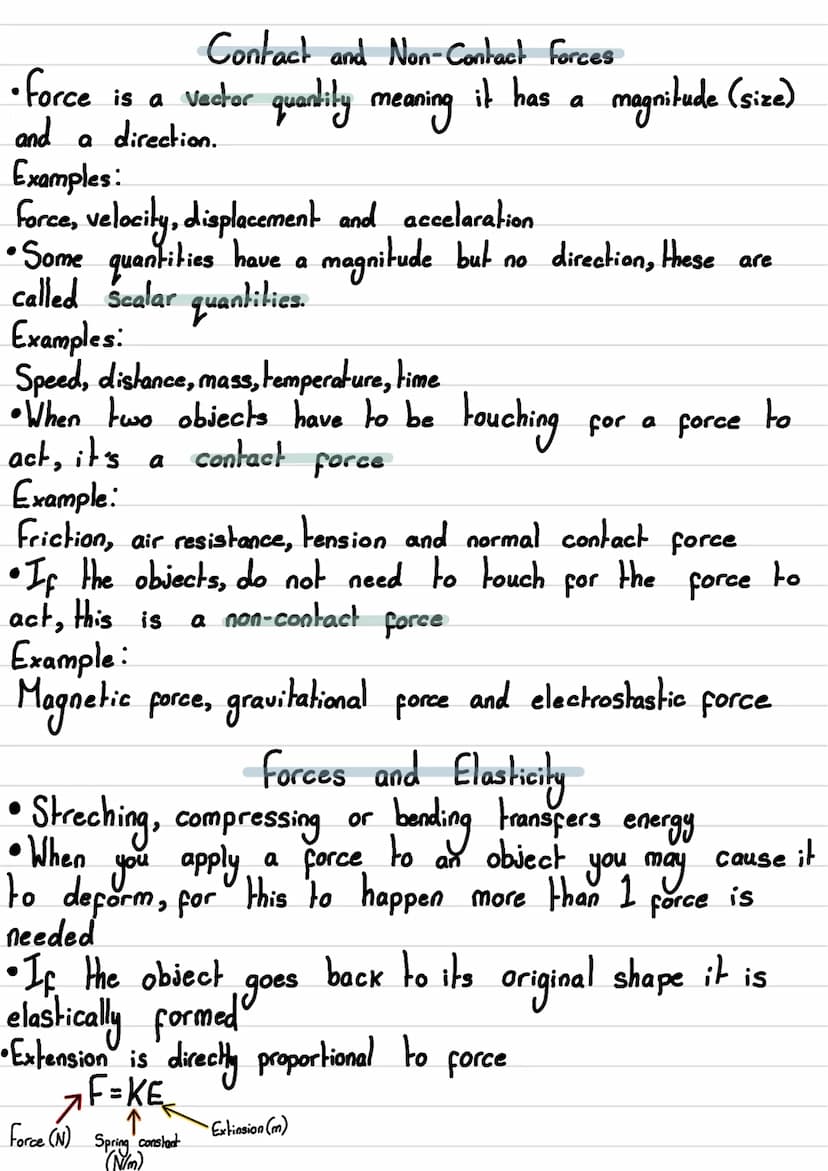 Contact and Non-Contact Forces
•Force is a vector quantity meaning it has a magnitude (size)
and a direction.
Examples:
Force, velocity, displacement and accelaration
•Some quantities have a magnitude but no direction, these are
called scalar quantities.
Examples:
Speed, distance, mass, temperature, time
•When two objects have to be touching for a force to
act, it's a contact force
Example:
Friction, air resistance, tension and normal contact force
•If the objects, do not need to touch for the force to
act, this is a non-contact force
Example:
Magnetic force, gravitational force and electrostastic force
Forces and Elasticity
• Streching, compressing or bending transfers energy
•When you apply a force to an object you may cause it
to deform, for this to happen more than 1 force is
needed
•If the object goes back to its original shape it is
elastically formed
•Extension is directly proportional to force
F=KE
Force (N) Spring constant Extinsion (m)
(N/m)